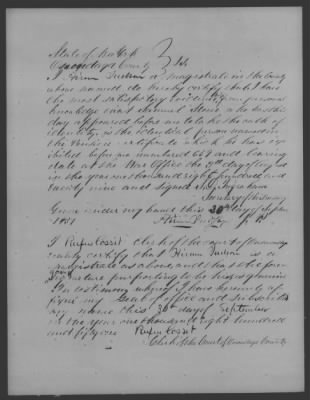 State of New York
Onondaga County } SS.
I Hiram Judson a magistrate in the county
above named do hereby certify that I have
the most satisfactory evidence from personal
knowledge that Samuel Stone who has this
day appeared before me to take the oath of
identity, is the identical person named in
the Pension certificate which he has ex
hibited before me numbered 669 and bearing
date at the War Office the 9th day of
in the year one thousand eight hundred and
twenty nine and signed
Secretary of
Given under my hand this 30th day of
Hiram Judson J. P.
I Rufus Cossit clerk of the court of Onondaga
county certify that Hiram Judson is a
magistrate as above, and that the fore
going signature purporting to be his is genuine
In testimony whereof I have hereunto af
fixed my Seal of office and subscribed
my name this 30th day of September
in the year one thousand eight hundred
and fifty one Rufus Cossit
Clerk of the Court of Onondaga County